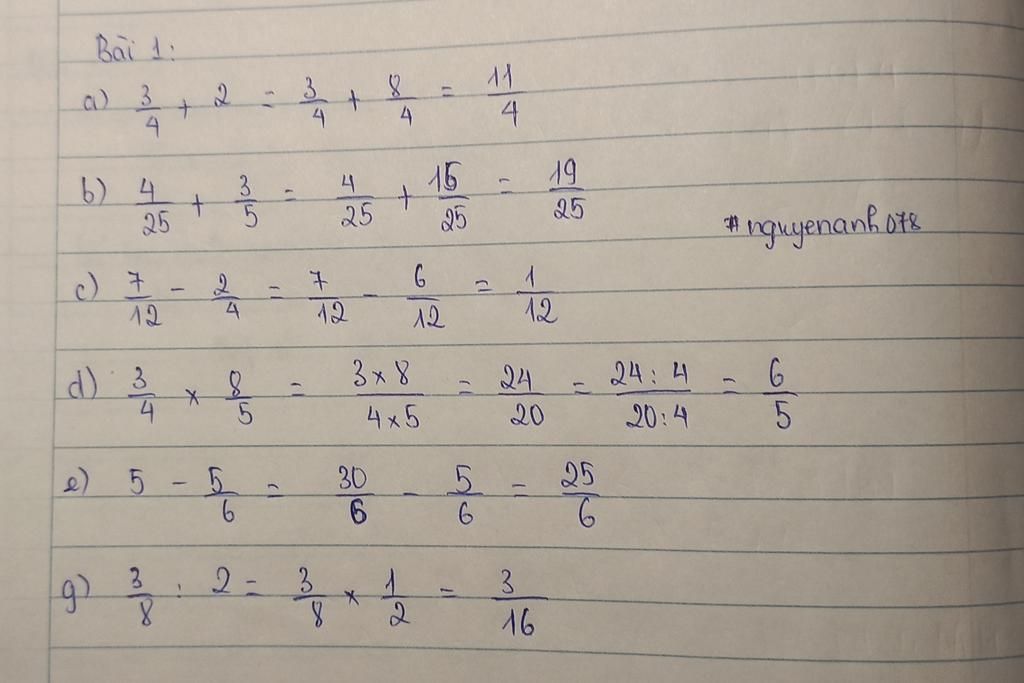 Bài 1:
a) 3/4 + 2 = 3/4 + 8/4 = 11/4
b) 4/25 + 3/5 = 4/25 + 15/25 = 19/25
#nguyenanh078
c) 7/12 - 2/4 = 7/12 - 6/12 = 1/12
d) 3/4 × 8/5 = 3×8/4×5 = 24/20 = 24:4/20:4 = 6/5
e) 5 - 5/6 = 30/6 - 5/6 = 25/6
g) 3/8 : 2 = 3/8 × 1/2 = 3/16